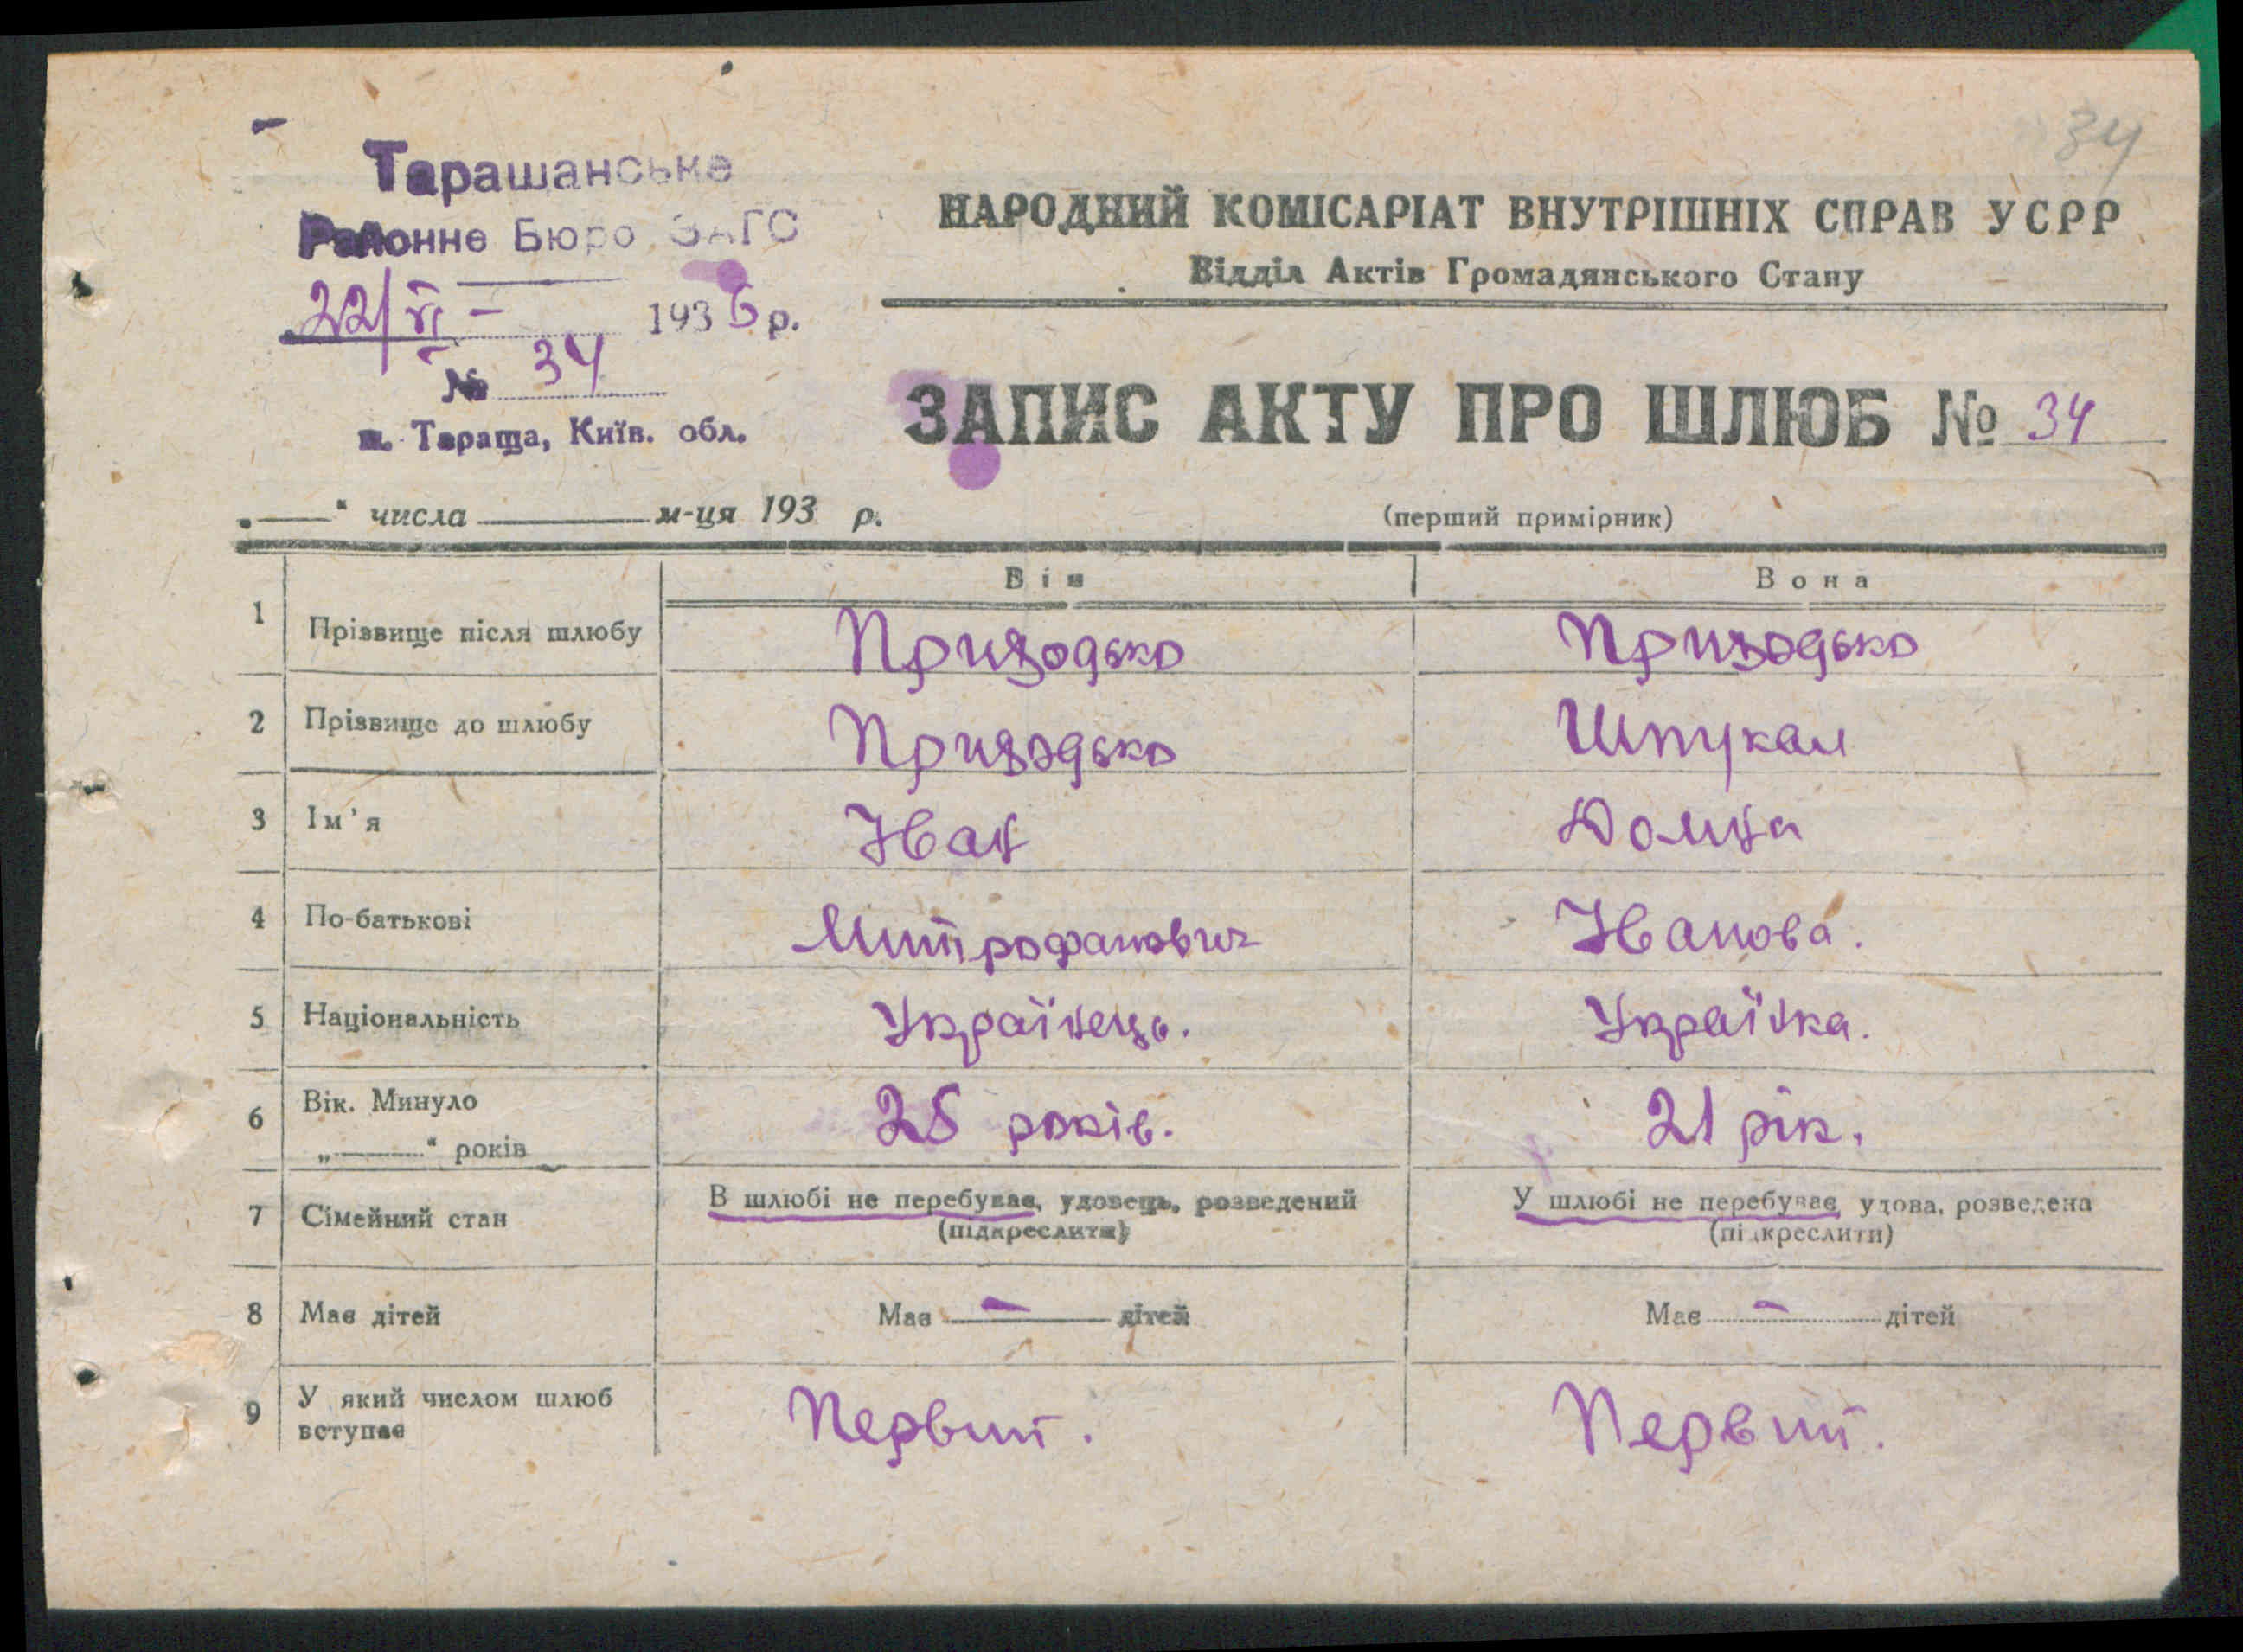 34
Тарашанське
Районне Бюро ЗАГС
22/VI - 1936 р.
№ 34
м. Тараща, Київ. обл.
НАРОДНИЙ КОМІСАРІАТ ВНУТРІШНІХ СПРАВ УСРР
Відділ Актів Громадянського Стану
ЗАПИС АКТУ ПРО ШЛЮБ № 34
„ “ числа м-ця 193 р.
(перший примірник)
Він Вона
1 Прізвище після шлюбу Приходько Приходько
2 Прізвище до шлюбу Приходько Шпукал
3 Ім'я Іван Домка
4 По-батькові Митрофанович Іванова.
5 Національність Українець. Українка.
6 Вік. Минуло
„ “ років 25 років. 21 рік.
7 Сімейний стан В шлюбі не перебуває, удовець, розведений У шлюбі не перебуває, удова, розведена
(підкреслити) (підкреслити)
8 Має дітей Має - дітей Має - дітей
9 У який числом шлюб
вступає Первий. Первий.